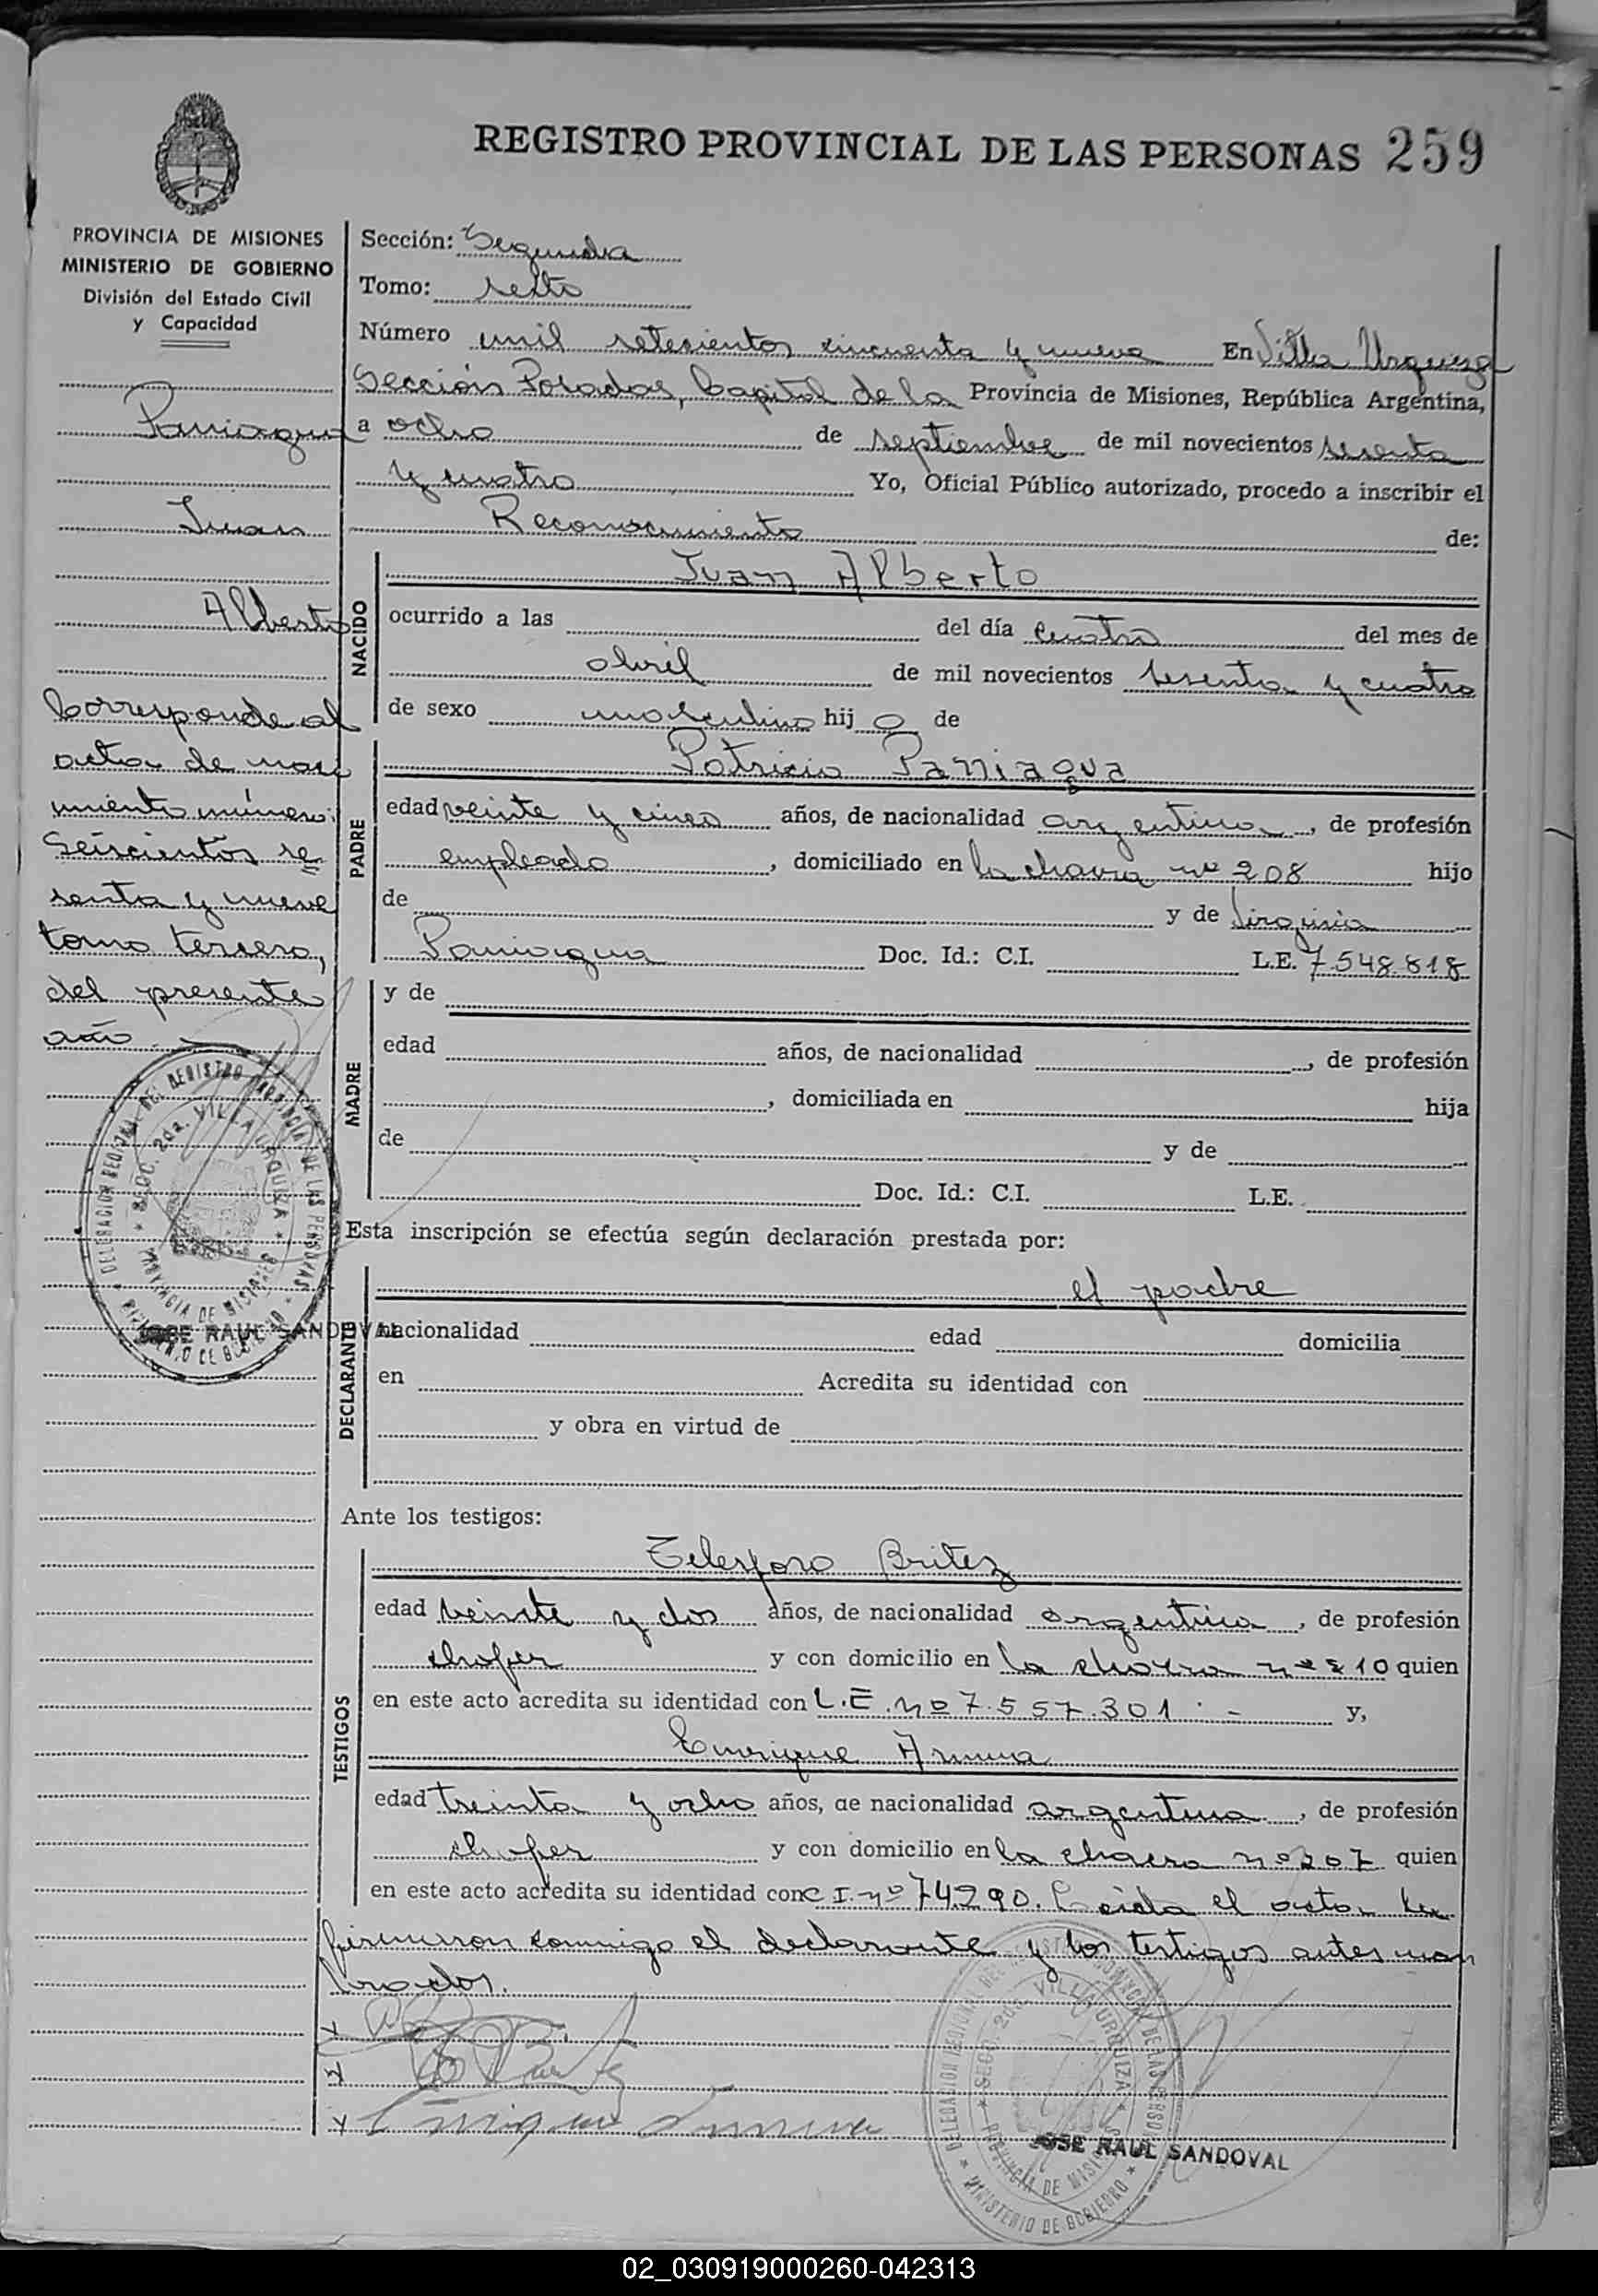 REGISTRO PROVINCIAL DE LAS PERSONAS 259
PROVINCIA DE MISIONES
MINISTERIO DE GOBIERNO
División del Estado Civil
y Capacidad
Paniagua
Juan
Alberto
Corresponde al
acta de naci
miento número:
Seiscientos se
senta y nueve
tomo tercero,
del presente
año.
DELEGACION REGIONAL DEL REGISTRO PROVINCIAL DE LAS PERSONAS
SECC. 2da. VILLA URQUIZA
PROVINCIA DE MISIONES
MINISTERIO DE GOBIERNO
JOSE RAUL SANDOVAL
Sección: Segunda
Tomo: sexto
Número mil setecientos cincuenta y nueve En Villa Urquiza
Sección Posadas, Capital de la Provincia de Misiones, República Argentina,
a ocho de septiembre de mil novecientos sesenta
y cuatro Yo, Oficial Público autorizado, procedo a inscribir el
Reconocimiento de:
NACIDO
Juan Alberto
ocurrido a las del día cuatro del mes de
abril de mil novecientos sesenta y cuatro
de sexo masculino hijo de
PADRE
Patricio Paniagua
edad veinte y cinco años, de nacionalidad argentina, de profesión
empleado, domiciliado en la chacra nº 208 hijo
de y de Virginia
Paniagua Doc. Id.: C.I. L.E. 7.548.818
MADRE
y de
edad años, de nacionalidad , de profesión
, domiciliada en hija
de y de
Doc. Id.: C.I. L.E.
Esta inscripción se efectúa según declaración prestada por:
DECLARANTE
el padre
nacionalidad edad domicilia
en Acredita su identidad con
y obra en virtud de
Ante los testigos:
TESTIGOS
Telesforo Britez
edad veinte y dos años, de nacionalidad argentina, de profesión
chofer y con domicilio en la chacra nº 210 quien
en este acto acredita su identidad con L.E. nº 7.557.301.- y,
Enrique
edad treinta y ocho años, de nacionalidad argentina, de profesión
chofer y con domicilio en la chacra nº 207 quien
en este acto acredita su identidad con C I. nº 74.290. Leída el acta la
firmaron conmigo el declarante y los testigos antes nom
brados.
DELEGACION REGIONAL DEL REGISTRO PROVINCIAL DE LAS PERSONAS
SECC. 2da. VILLA URQUIZA
PROVINCIA DE MISIONES
MINISTERIO DE GOBIERNO
JOSE RAUL SANDOVAL
02_030919000260-042313